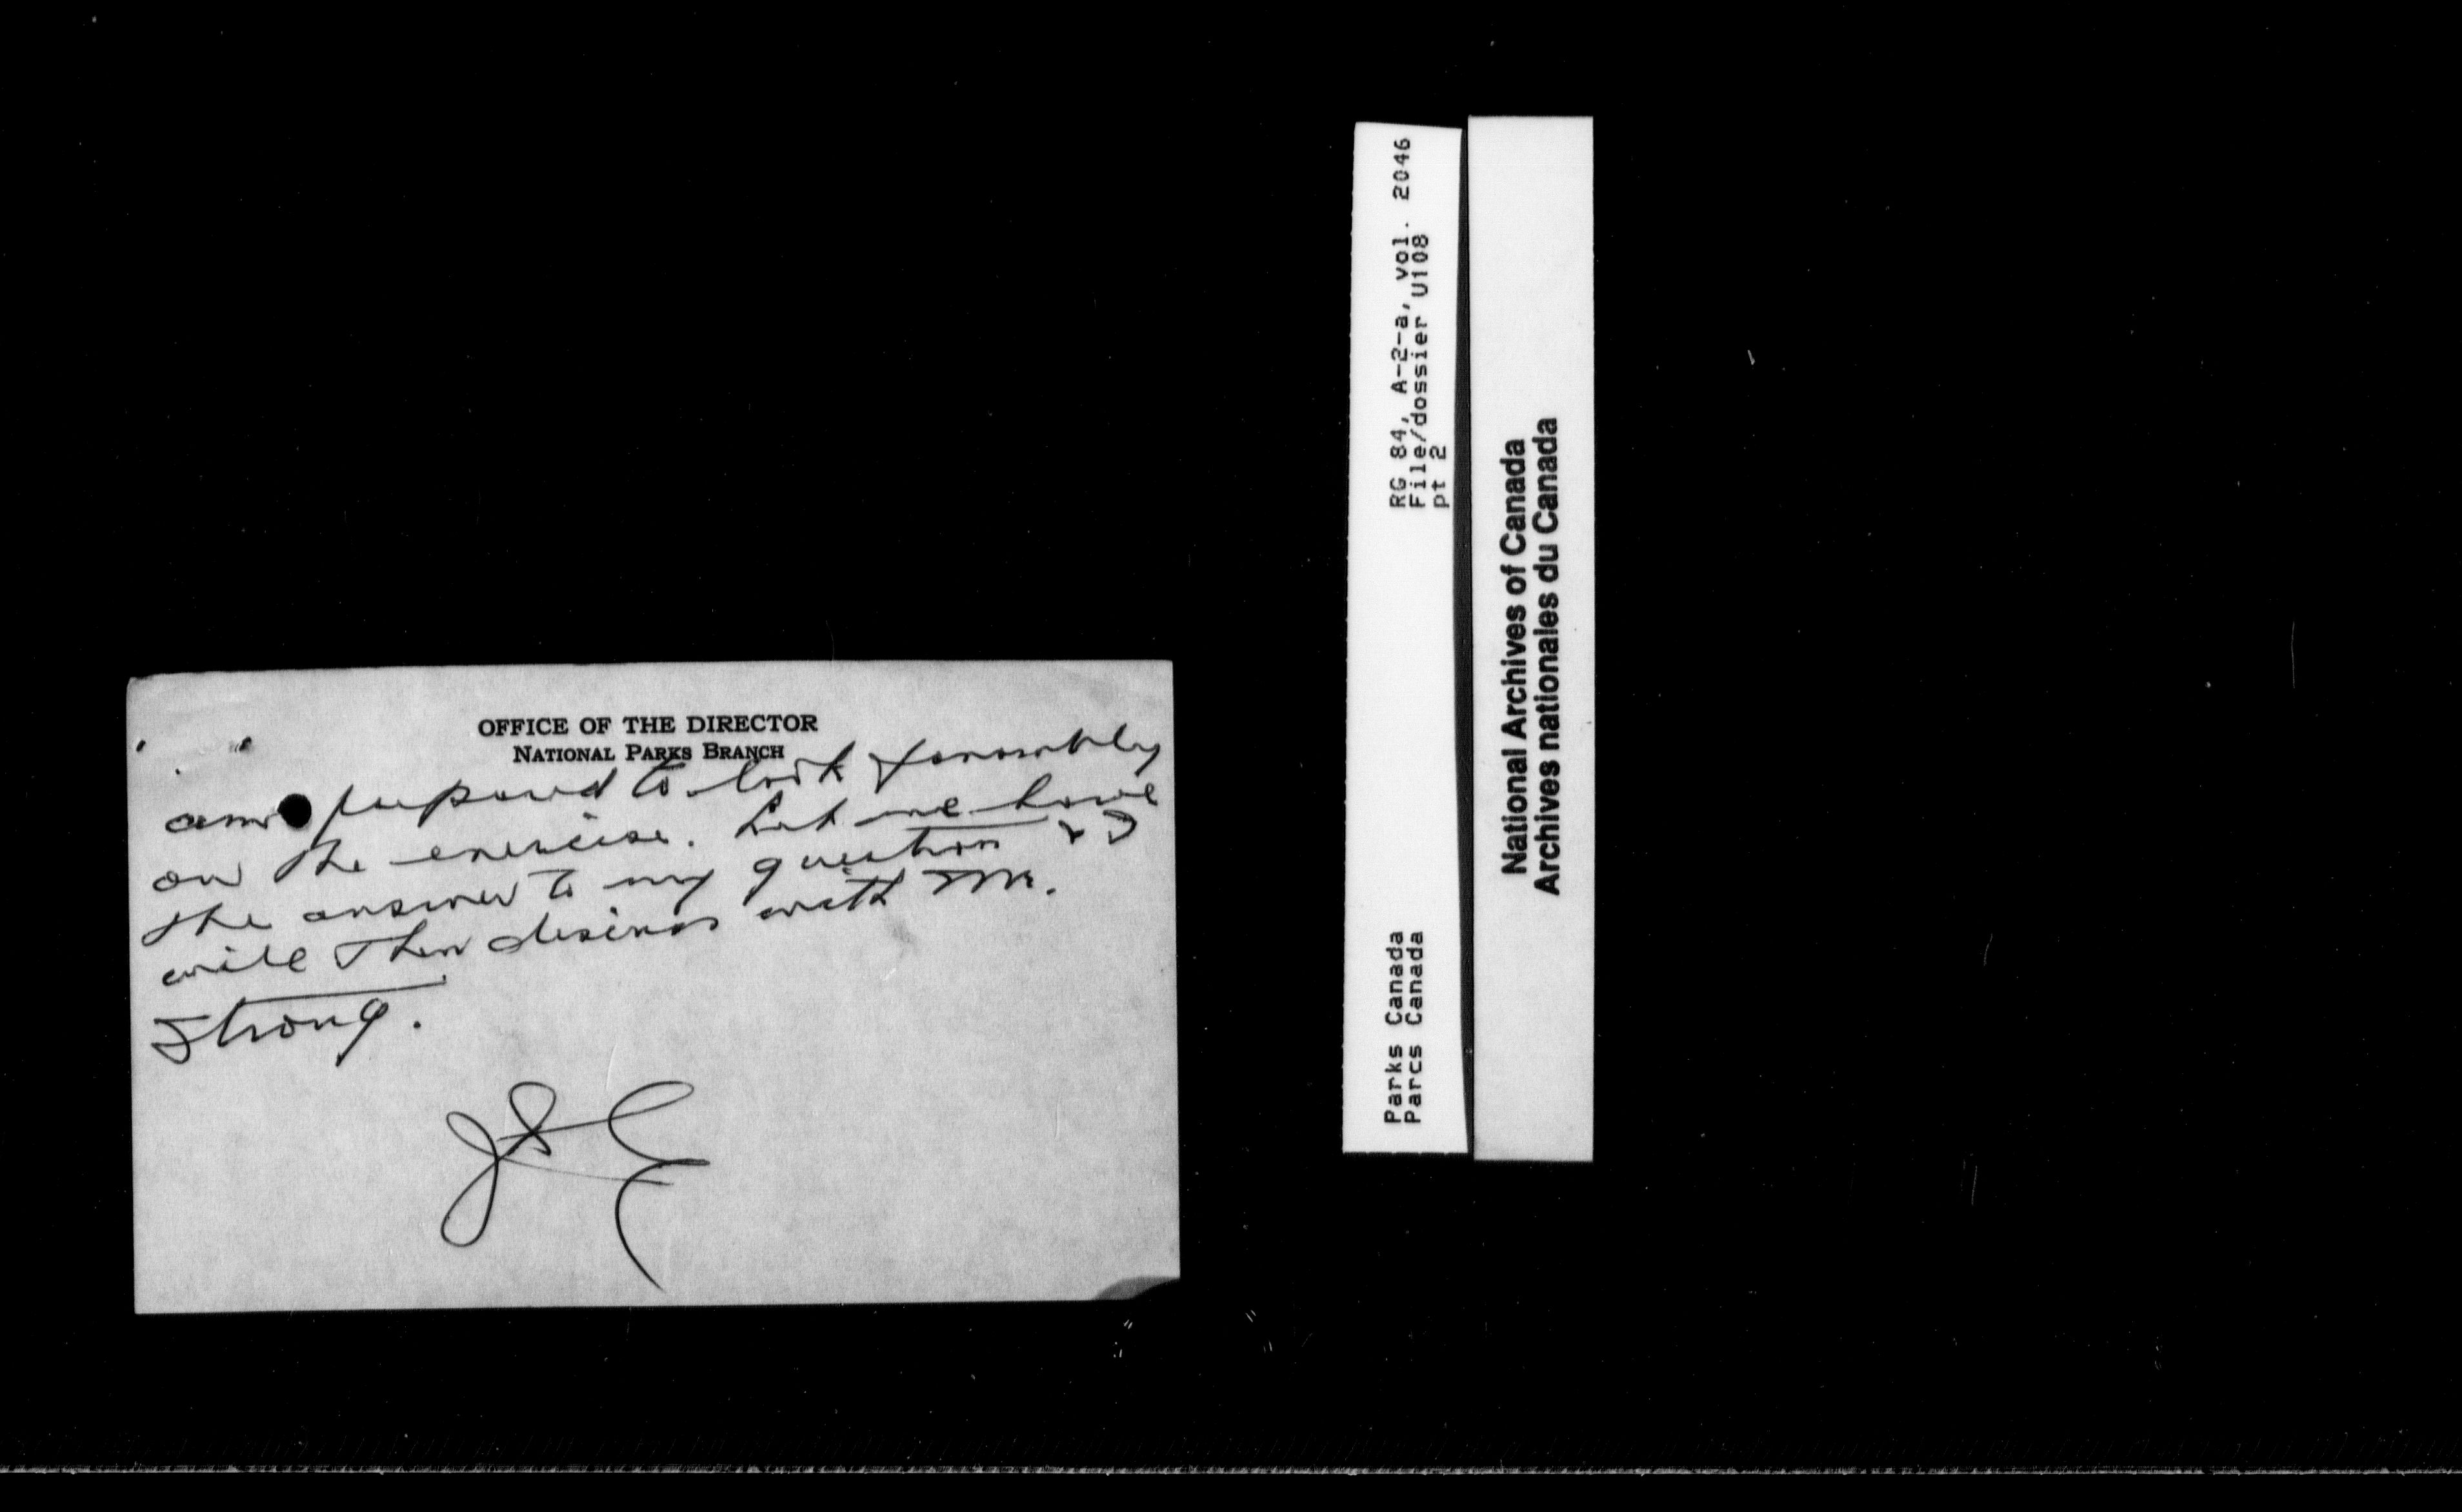 OFFICE OF THE DIRECTOR
NATIONAL PARKS BRANCH
am prepared to look favourably
on the exercise. Let me have
the answer to my question & I
will then discuss with Mr.
Strong.
RG 84, A-2-a, vol. 2046
File/dossier U108
pt 2
Parks Canada
Parcs Canada
National Archives of Canada
Archives nationales du Canada